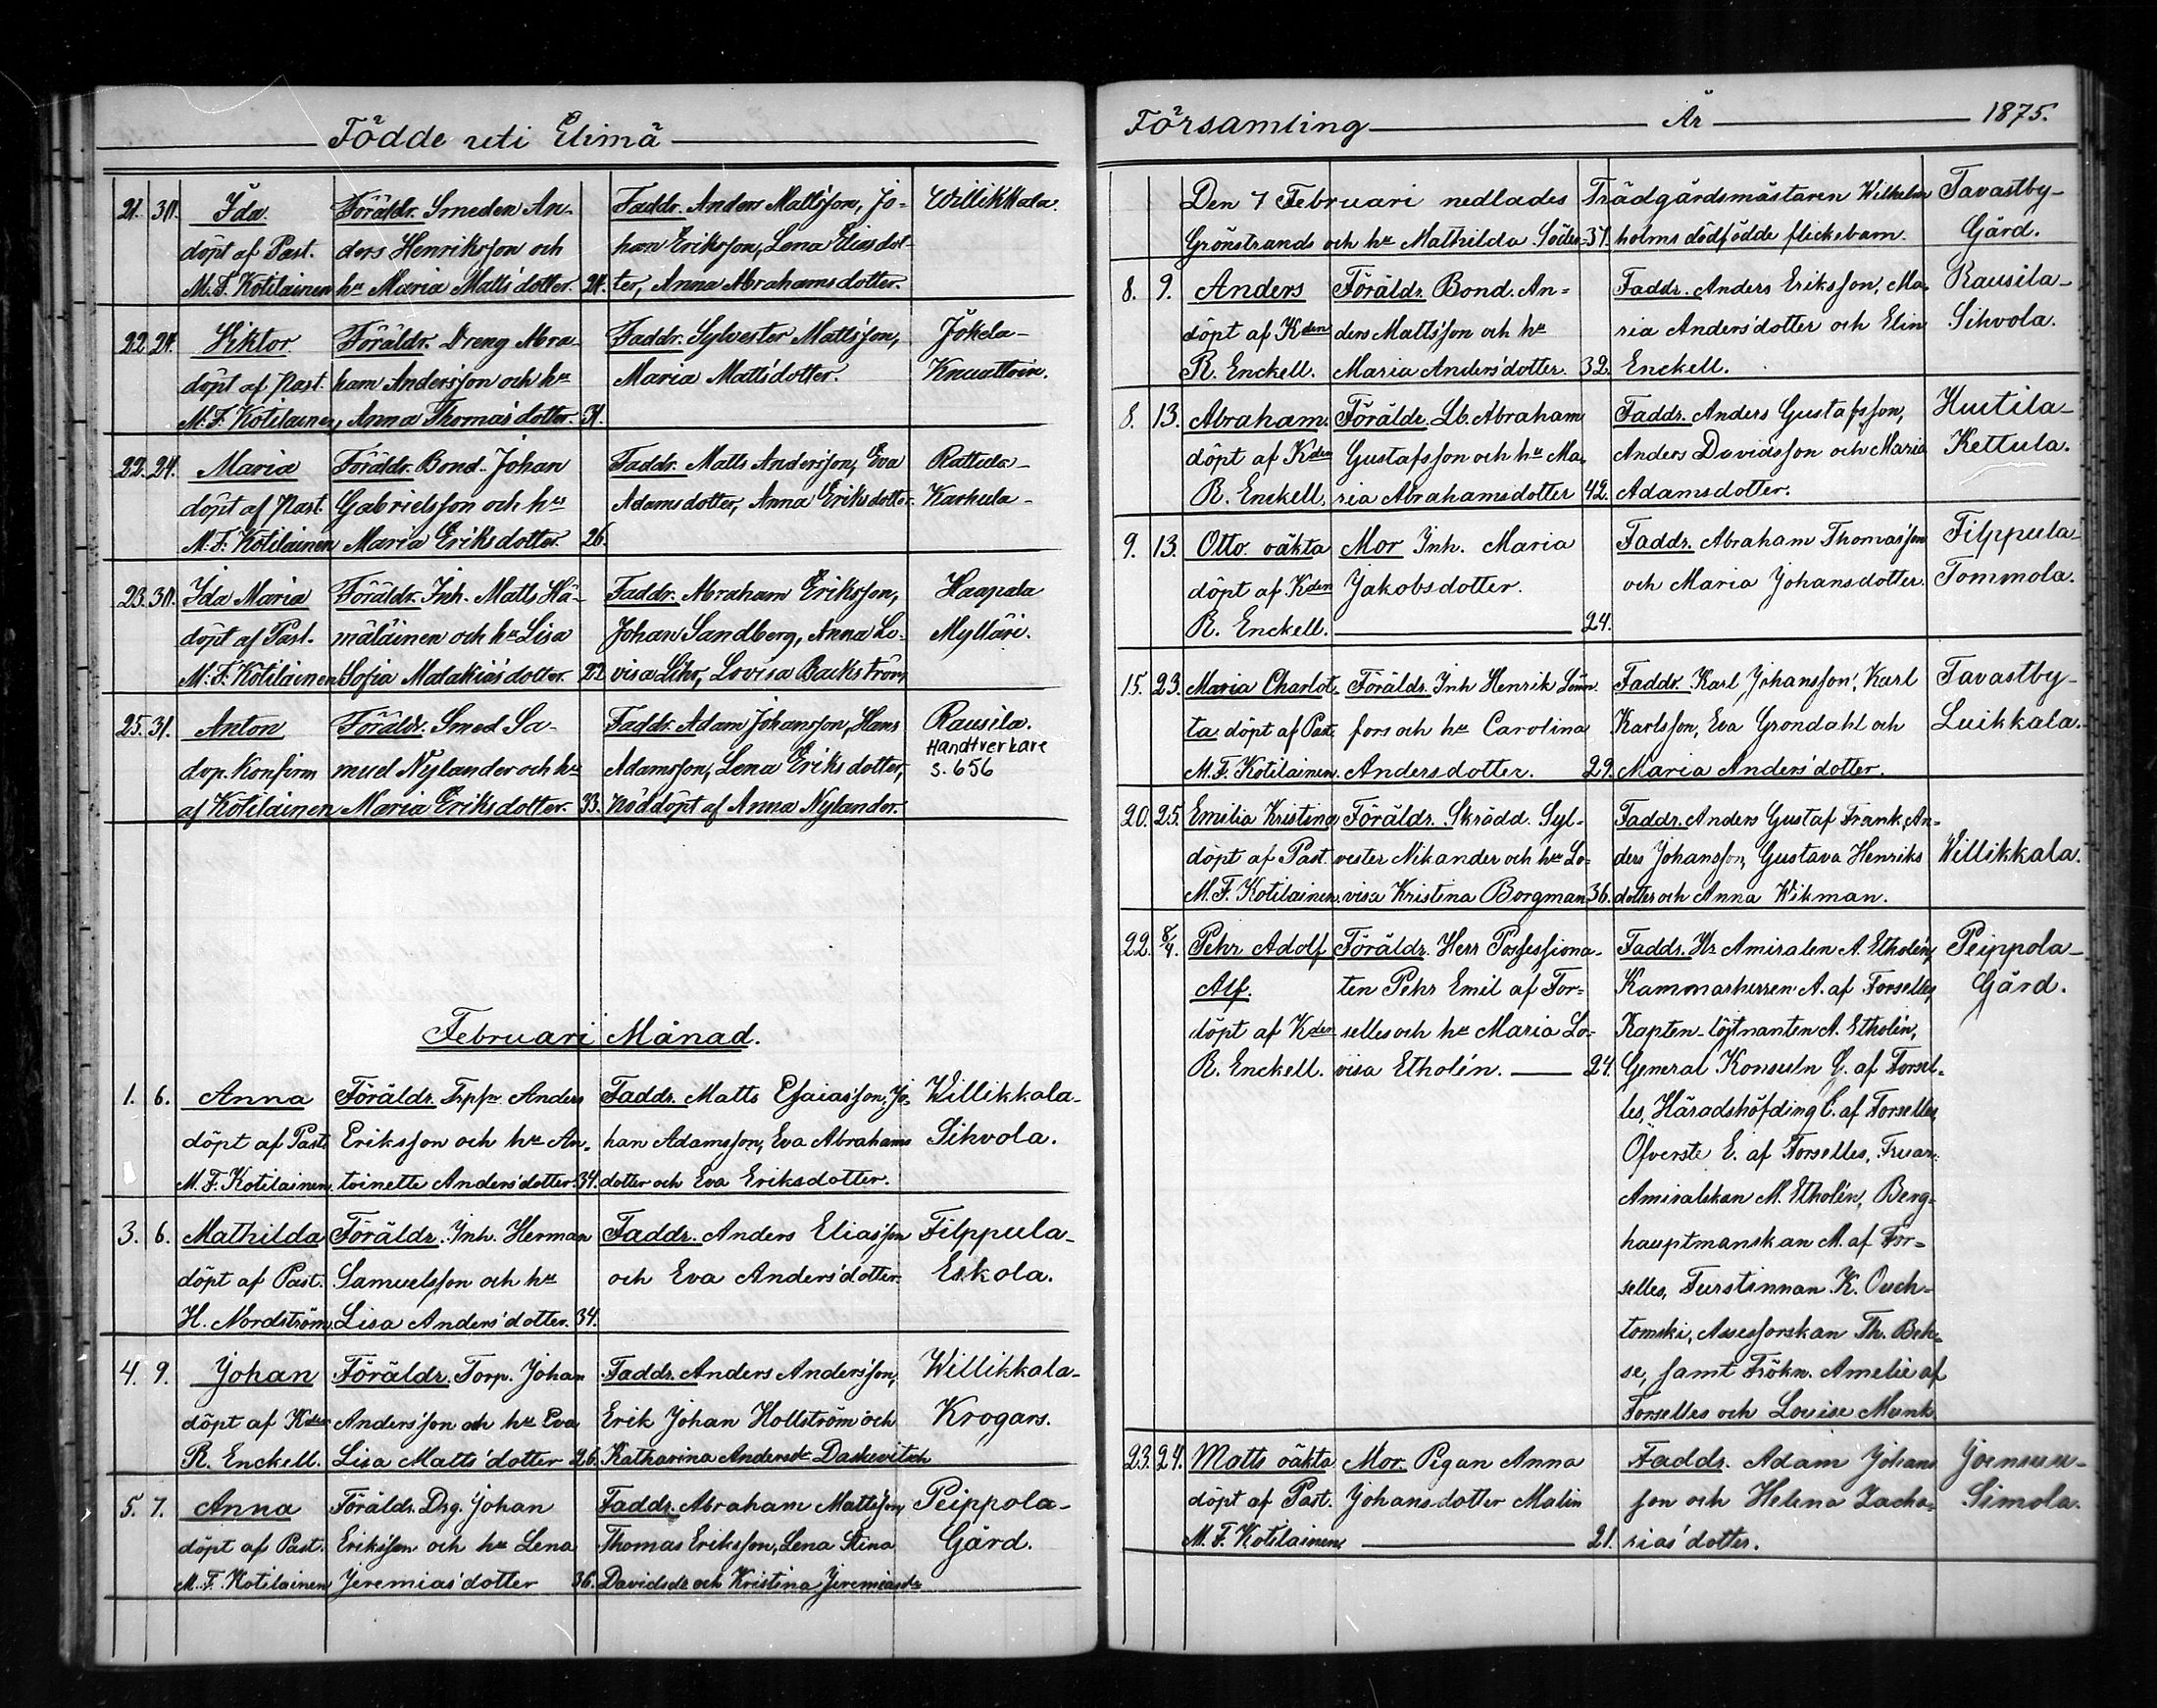 Födde uti Elimä
21. 31. Ida Föräldr. Smeden An- Faddr. Anders Mattsson, Jo- Willikkala.
döpt af Past. ders Henriksson och han Eriksson, Lena Eliasdot-
M. F. Kotilainen hu Maria Matts'dotter. 24. ter, Anna Abrahamsdotter.
22. 24. Wiktor Föräldr. Dreng Abra- Faddr. Sylvester Mattsson, Jokela-
döpt af Past. ham Andersson och hu Maria Matts'dotter. Knuuttoin.
M. F. Kotilainen, Anna Thomas'dotter. 31.
22. 24. Maria Föräldr. Bond. Johan Faddr. Matts Andersson, Eva Rattula-
döpt af Past. Gabrielsson och hu Adamsdotter, Anna Eriksdotter. Karhula-
M. F. Kotilainen Maria Eriksdotter. 26.
23. 31. Ida Maria Föräldr. Inh. Matts Hä- Faddr. Abraham Eriksson, Haapala
döpt af Past. mäläinen och hu Lisa Johan Sandberg, Anna Lo- Mylläri.
M. F. Kotilainen Sofia Malakias'dotter. 22. visa Lihr, Lovisa Backström
25. 31. Anton Föräldr. Smed Sa- Faddr. Adam Johansson, Hans Rausila.
dop. Konfirm muel Nylander och hu Adamsson, Lena Eriksdotter, Handtverkare s. 656
af Kotilainen Maria Eriksdotter. 33. Nöddöpt af Anna Nylander.
Februari Månad.
1. 6. Anna Föräldr. Trpn Anders Faddr. Matts Esaiasson, Jo- Willikkala-
döpt af Past. Eriksson och hu An- han Adamsson, Eva Abrahams Sihvola.
M. F. Kotilainen. toinette Anders'dotter. 34. dotter och Eva Eriksdotter.
3. 6. Mathilda Föräldr. Inh. Herman Faddr. Anders Eliasson Filppula-
döpt af Past. Samuelsson och hu och Eva Anders'dotter. Eskola.
H. Nordström. Lisa Anders'dotter. 34.
4. 9. Johan Föräldr. Torp. Johan Faddr. Anders Andersson, Willikkala-
döpt af Kden Andersson och hu Eva Erik Johan Hollström och Krogars.
R. Enckell. Lisa Matts'dotter 26. Katharina Andersdr Daskevitsch
5. 7. Anna Föräldr. Drg. Johan Faddr. Abraham Mattsson, Peippola-
döpt af Past. Eriksson och hu Lena Thomas Eriksson, Lena Stina Gård.
M. F. Kotilainen Jeremias'dotter 36. Davidsdr och Kristina Jeremiasdr
Församling År 1875.
Den 7 Februari nedlades Trädgårdsmästaren Wilhelm Tavastby-
Grönstrands och hu Mathilda Söder- 37. holms dödfödde flickebarn. Gård.
8. 9. Anders Föräldr. Bond. An- Faddr. Anders Eriksson, Ma- Rausila-
döpt af Kden ders Mattsson och hu ria Anders'dotter och Elin Sihvola.
R. Enckell. Maria Anders'dotter. 32. Enckell.
8. 13. Abraham. Föräldr. Lb. Abraham Faddr. Anders Gustafsson, Huitila-
döpt af Kden Gustafsson och hu Ma- Anders Davidsson och Maria Kettula.
R. Enckell. ria Abrahamsdotter 42. Adamsdotter.
9. 13. Otto oäkta Mor Inh. Maria Faddr. Abraham Thomasson Filppula-
döpt af Kden Jakobsdotter. och Maria Johansdotter. Tommola.
R. Enckell. 24.
15. 23. Maria Charlot- Föräldr. Inh Henrik Lönn- Faddr. Karl Johansson, Karl Tavastby-
ta döpt af Past. fors och hu Carolina Karlsson, Eva Grondahl och Luikkala.
M. F. Kotilainen. Andersdotter. 29. Maria Anders'dotter.
20. 25. Emilia Kristina Föräldr. Skrädd. Syl- Faddr. Anders Gustaf Frank, An-
döpt af Past. vester Nikander och hu Lo- ders Johansson, Gustava Henriks Willikkala.
M. F. Kotilainen. visa Kristina Borgman 36. dotter och Anna Wikman.
22. 8/4. Pehr Adolf Föräldr. Herr Possessiona- Faddr. Hr Amiralen A. Etholén, Peippola-
Alf. ten Pehr Emil af For- Kammarherren A. af Forselles, Gård.
döpt af Kden selles och hu Maria Lo- Kapten-löjtnanten A. Etholén,
R. Enckell. visa Etholén. 24. General Konsuln G. af Forsel-
les, Häradshöfding C. af Forselles,
Öfverste E. af Forselles, Fruar:
Amiralskan M. Etholén, Berg-
hauptmanskan M. af For-
selles, Furstinnan K. Ouch-
tomski, Assessorskan Th. Beh-
se, samt Frökn. Amelie af
Forselles och Louise Munk.
23. 24. Matts oäkta Mor. Pigan Anna Faddr. Adam Johans Joensuu-
döpt af Past. Johansdotter Malin son och Helena Zacha- Simola.
M. F. Kotilainen. 21. rias'dotter.